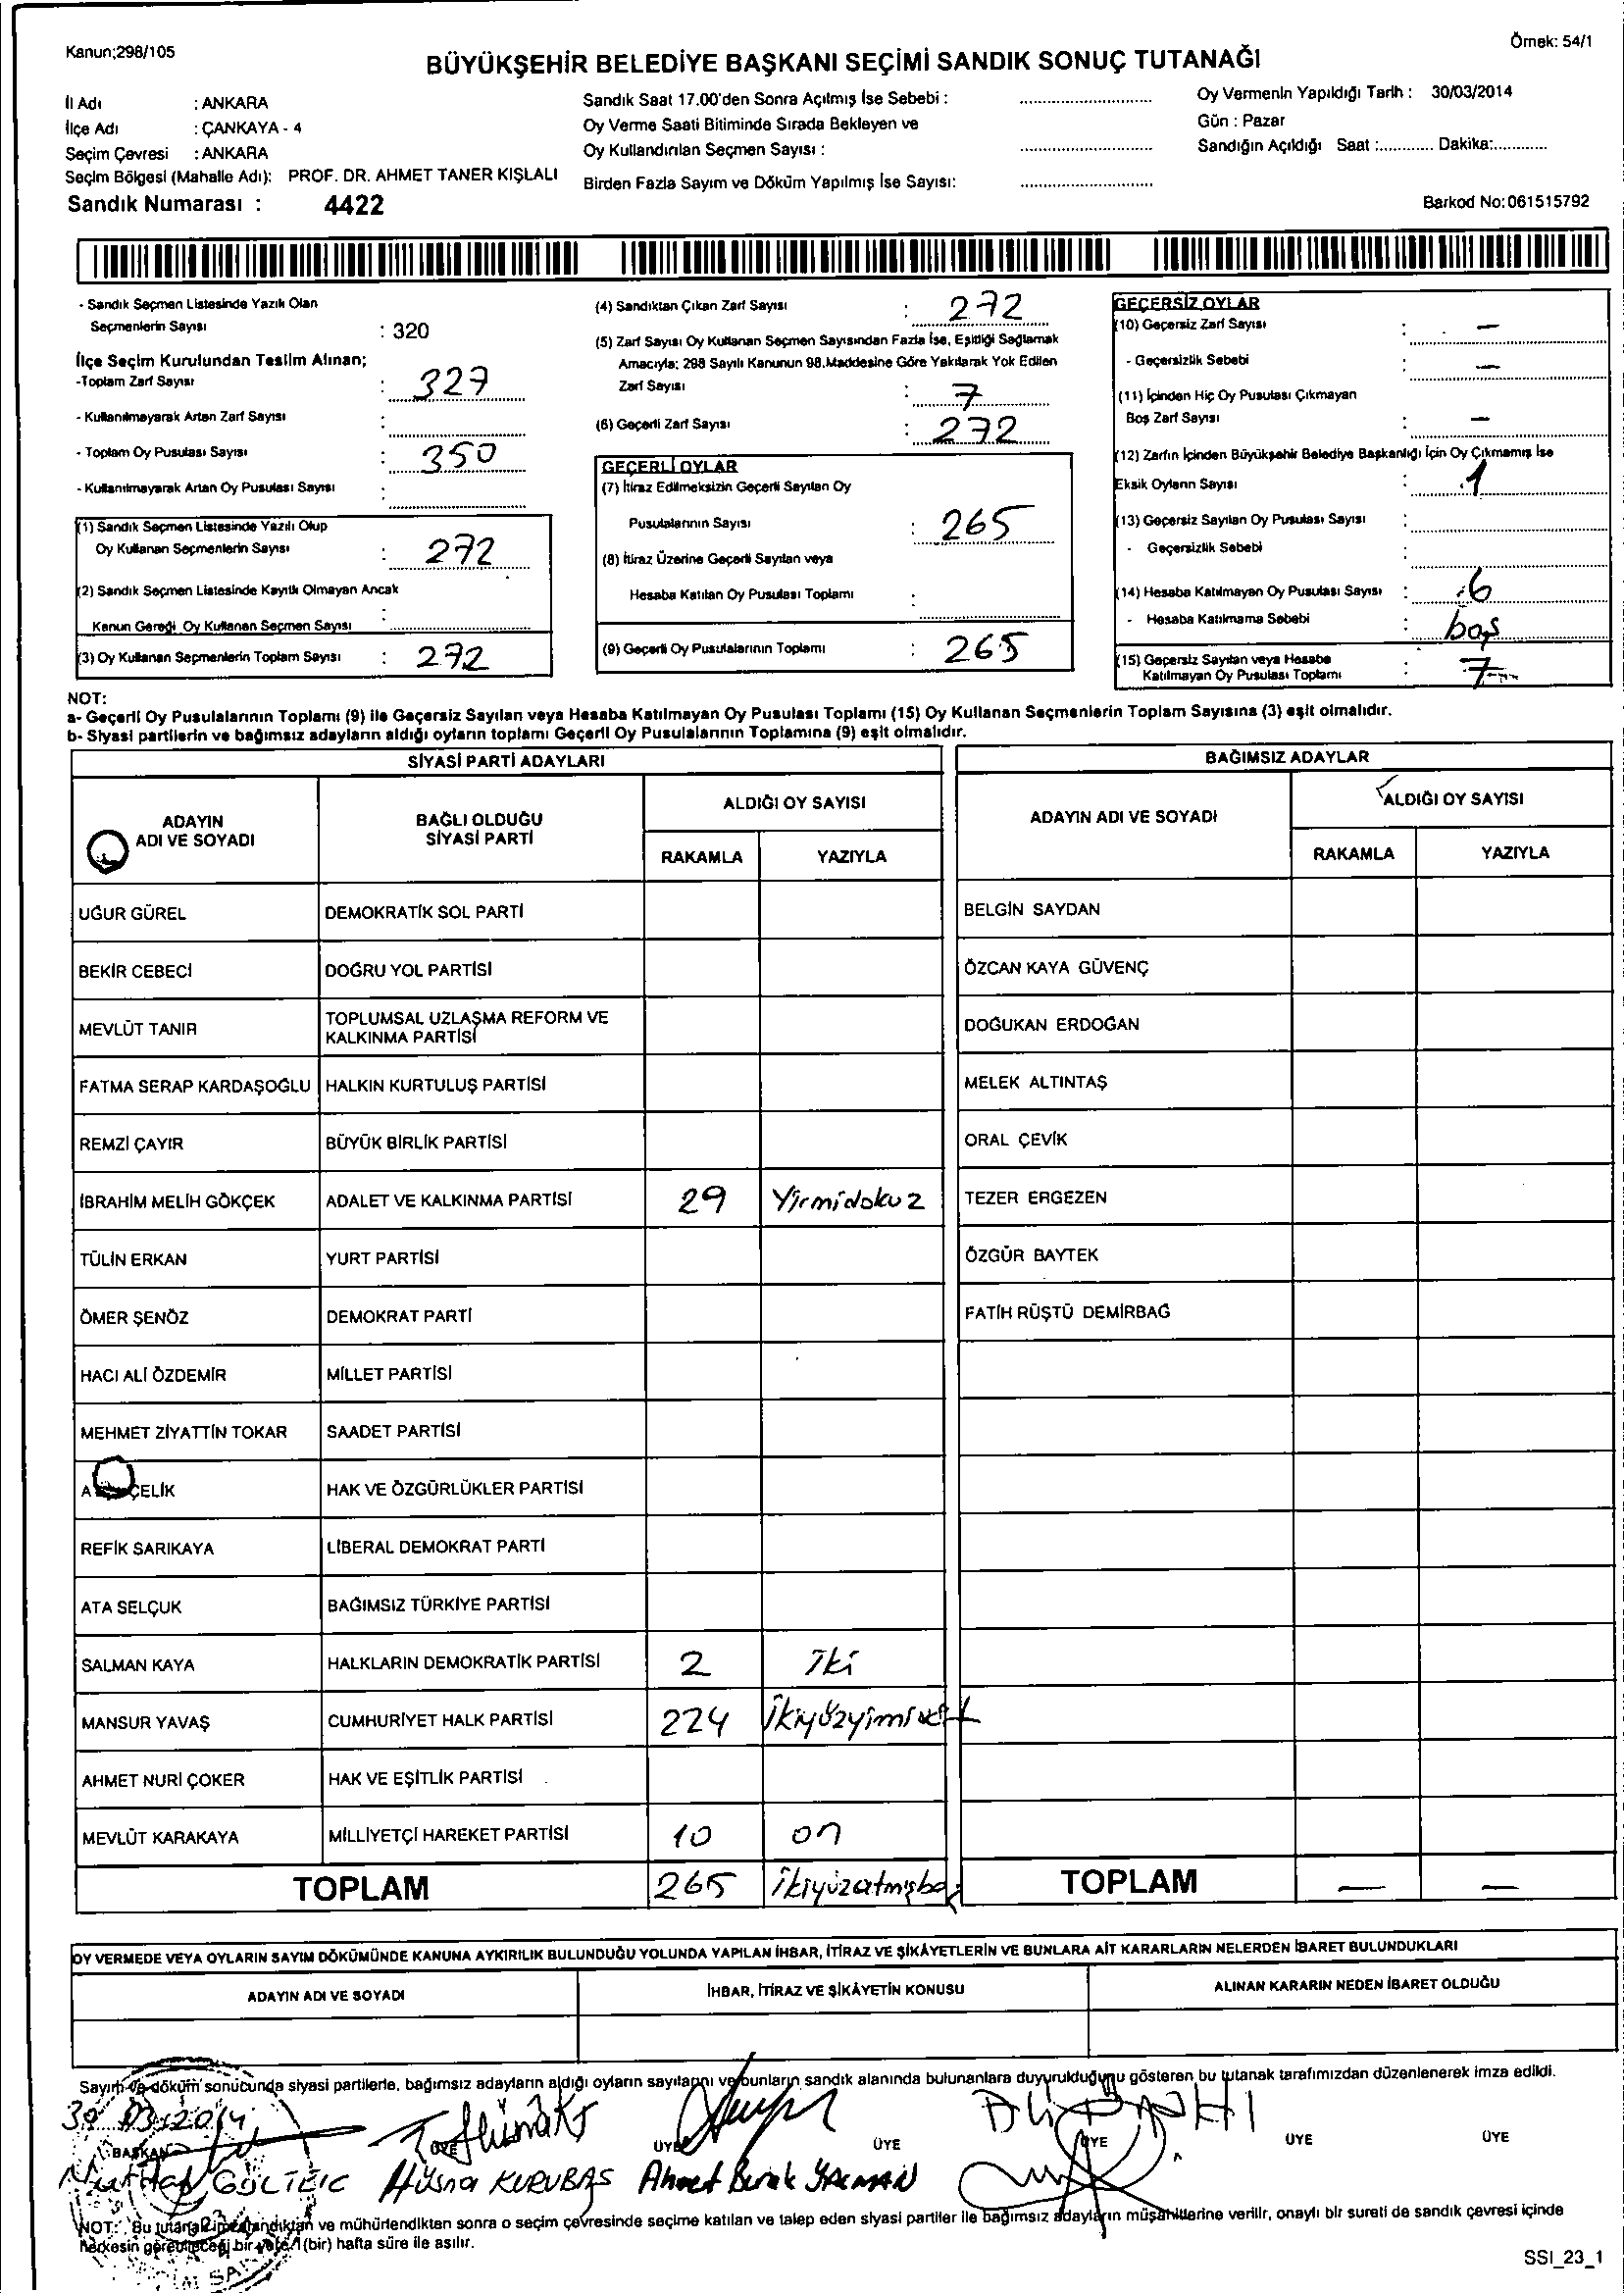 Kanun;298/105
Örnek: 54/1
BÜYÜKŞEHİR BELEDİYE BAŞKANI SEÇİMİ SANDIK SONUÇ TUTANAĞI
İl Adı : ANKARA
İlçe Adı : ÇANKAYA - 4
Seçim Çevresi : ANKARA
Seçim Bölgesi (Mahalle Adı): PROF. DR. AHMET TANER KIŞLALI
Sandık Numarası : 4422
Sandık Saat 17.00'den Sonra Açılmış İse Sebebi :
Oy Verme Saati Bitiminde Sırada Bekleyen ve
Oy Kullandırılan Seçmen Sayısı :
Birden Fazla Sayım ve Döküm Yapılmış İse Sayısı:
Oy Vermenin Yapıldığı Tarih : 30/03/2014
Gün : Pazar
Sandığın Açıldığı Saat :............ Dakika:............
Barkod No:061515792
- Sandık Seçmen Listesinde Yazılı Olan
Seçmenlerin Sayısı : 320
İlçe Seçim Kurulundan Teslim Alınan;
-Toplam Zarf Sayısı : 327
- Kullanılmayarak Artan Zarf Sayısı :
- Toplam Oy Pusulası Sayısı : 350
- Kullanılmayarak Artan Oy Pusulası Sayısı :
(1) Sandık Seçmen Listesinde Yazılı Olup
Oy Kullanan Seçmenlerin Sayısı : 272
(2) Sandık Seçmen Listesinde Kayıtlı Olmayan Ancak
Kanun Gereği Oy Kullanan Seçmen Sayısı :
(3) Oy Kullanan Seçmenlerin Toplam Sayısı : 272
(4) Sandıktan Çıkan Zarf Sayısı : 272
(5) Zarf Sayısı Oy Kullanan Seçmen Sayısından Fazla İse, Eşitliği Sağlamak
Amacıyla; 298 Sayılı Kanunun 98.Maddesine Göre Yakılarak Yok Edilen
Zarf Sayısı : 7
(6) Geçerli Zarf Sayısı : 272
GEÇERLİ OYLAR
(7) İtiraz Edilmeksizin Geçerli Sayılan Oy
Pusulalarının Sayısı : 265
(8) İtiraz Üzerine Geçerli Sayılan veya
Hesaba Katılan Oy Pusulası Toplamı :
(9) Geçerli Oy Pusulalarının Toplamı : 265
GEÇERSİZ OYLAR
(10) Geçersiz Zarf Sayısı : —
- Geçersizlik Sebebi : —
(11) İçinden Hiç Oy Pusulası Çıkmayan
Boş Zarf Sayısı : —
(12) Zarfın İçinden Büyükşehir Belediye Başkanlığı İçin Oy Çıkmamış İse
Eksik Oyların Sayısı : 1
(13) Geçersiz Sayılan Oy Pusulası Sayısı :
- Geçersizlik Sebebi :
(14) Hesaba Katılmayan Oy Pusulası Sayısı : 6
- Hesaba Katılmama Sebebi : boş
(15) Geçersiz Sayılan veya Hesaba
Katılmayan Oy Pusulası Toplamı : 7
NOT:
a- Geçerli Oy Pusulalarının Toplamı (9) ile Geçersiz Sayılan veya Hesaba Katılmayan Oy Pusulası Toplamı (15) Oy Kullanan Seçmenlerin Toplam Sayısına (3) eşit olmalıdır.
b- Siyasi partilerin ve bağımsız adayların aldığı oyların toplamı Geçerli Oy Pusulalarının Toplamına (9) eşit olmalıdır.
SİYASİ PARTİ ADAYLARI
ADAYIN ADI VE SOYADI
BAĞLI OLDUĞU SİYASİ PARTİ
ALDIĞI OY SAYISI
RAKAMLA YAZIYLA
UĞUR GÜREL DEMOKRATİK SOL PARTİ
BEKİR CEBECİ DOĞRU YOL PARTİSİ
MEVLÜT TANIR TOPLUMSAL UZLAŞMA REFORM VE KALKINMA PARTİSİ
FATMA SERAP KARDAŞOĞLU HALKIN KURTULUŞ PARTİSİ
REMZİ ÇAYIR BÜYÜK BİRLİK PARTİSİ
İBRAHİM MELİH GÖKÇEK ADALET VE KALKINMA PARTİSİ 29 Yirmidokuz
TÜLİN ERKAN YURT PARTİSİ
ÖMER ŞENÖZ DEMOKRAT PARTİ
HACI ALİ ÖZDEMİR MİLLET PARTİSİ
MEHMET ZİYATTİN TOKAR SAADET PARTİSİ
ÇELİK HAK VE ÖZGÜRLÜKLER PARTİSİ
REFİK SARIKAYA LİBERAL DEMOKRAT PARTİ
ATA SELÇUK BAĞIMSIZ TÜRKİYE PARTİSİ
SALMAN KAYA HALKLARIN DEMOKRATİK PARTİSİ 2 İki
MANSUR YAVAŞ CUMHURİYET HALK PARTİSİ 224
AHMET NURİ ÇOKER HAK VE EŞİTLİK PARTİSİ
MEVLÜT KARAKAYA MİLLİYETÇİ HAREKET PARTİSİ 10 on
TOPLAM 265
BAĞIMSIZ ADAYLAR
ADAYIN ADI VE SOYADI
ALDIĞI OY SAYISI
RAKAMLA YAZIYLA
BELGİN SAYDAN
ÖZCAN KAYA GÜVENÇ
DOĞUKAN ERDOĞAN
MELEK ALTINTAŞ
ORAL ÇEVİK
TEZER ERGEZEN
ÖZGÜR BAYTEK
FATİH RÜŞTÜ DEMİRBAĞ
TOPLAM — —
OY VERMEDE VEYA OYLARIN SAYIM DÖKÜMÜNDE KANUNA AYKIRILIK BULUNDUĞU YOLUNDA YAPILAN İHBAR, İTİRAZ VE ŞİKÂYETLERİN VE BUNLARA AİT KARARLARIN NELERDEN İBARET BULUNDUKLARI
ADAYIN ADI VE SOYADI
İHBAR, İTİRAZ VE ŞİKÂYETİN KONUSU
ALINAN KARARIN NEDEN İBARET OLDUĞU
Sayım ve döküm sonucunda siyasi partilerle, bağımsız adayların aldığı oyların sayılarını ve bunların sandık alanında bulunanlara duyurulduğunu gösteren bu tutanak tarafımızdan düzenlenerek imza edildi.
30.03.2014
BAŞKAN ÜYE ÜYE ÜYE ÜYE ÜYE
Hüsna KURUBAŞ Ahmet Burak YALMAN
NOT: Bu tutanak imzalandıktan ve mühürlendikten sonra o seçim çevresinde seçime katılan ve talep eden siyasi partiler ile bağımsız adayların müşahitlerine verilir, onaylı bir sureti de sandık çevresi içinde
herkesin görebileceği bir yere 1 (bir) hafta süre ile asılır.
SSI_23_1